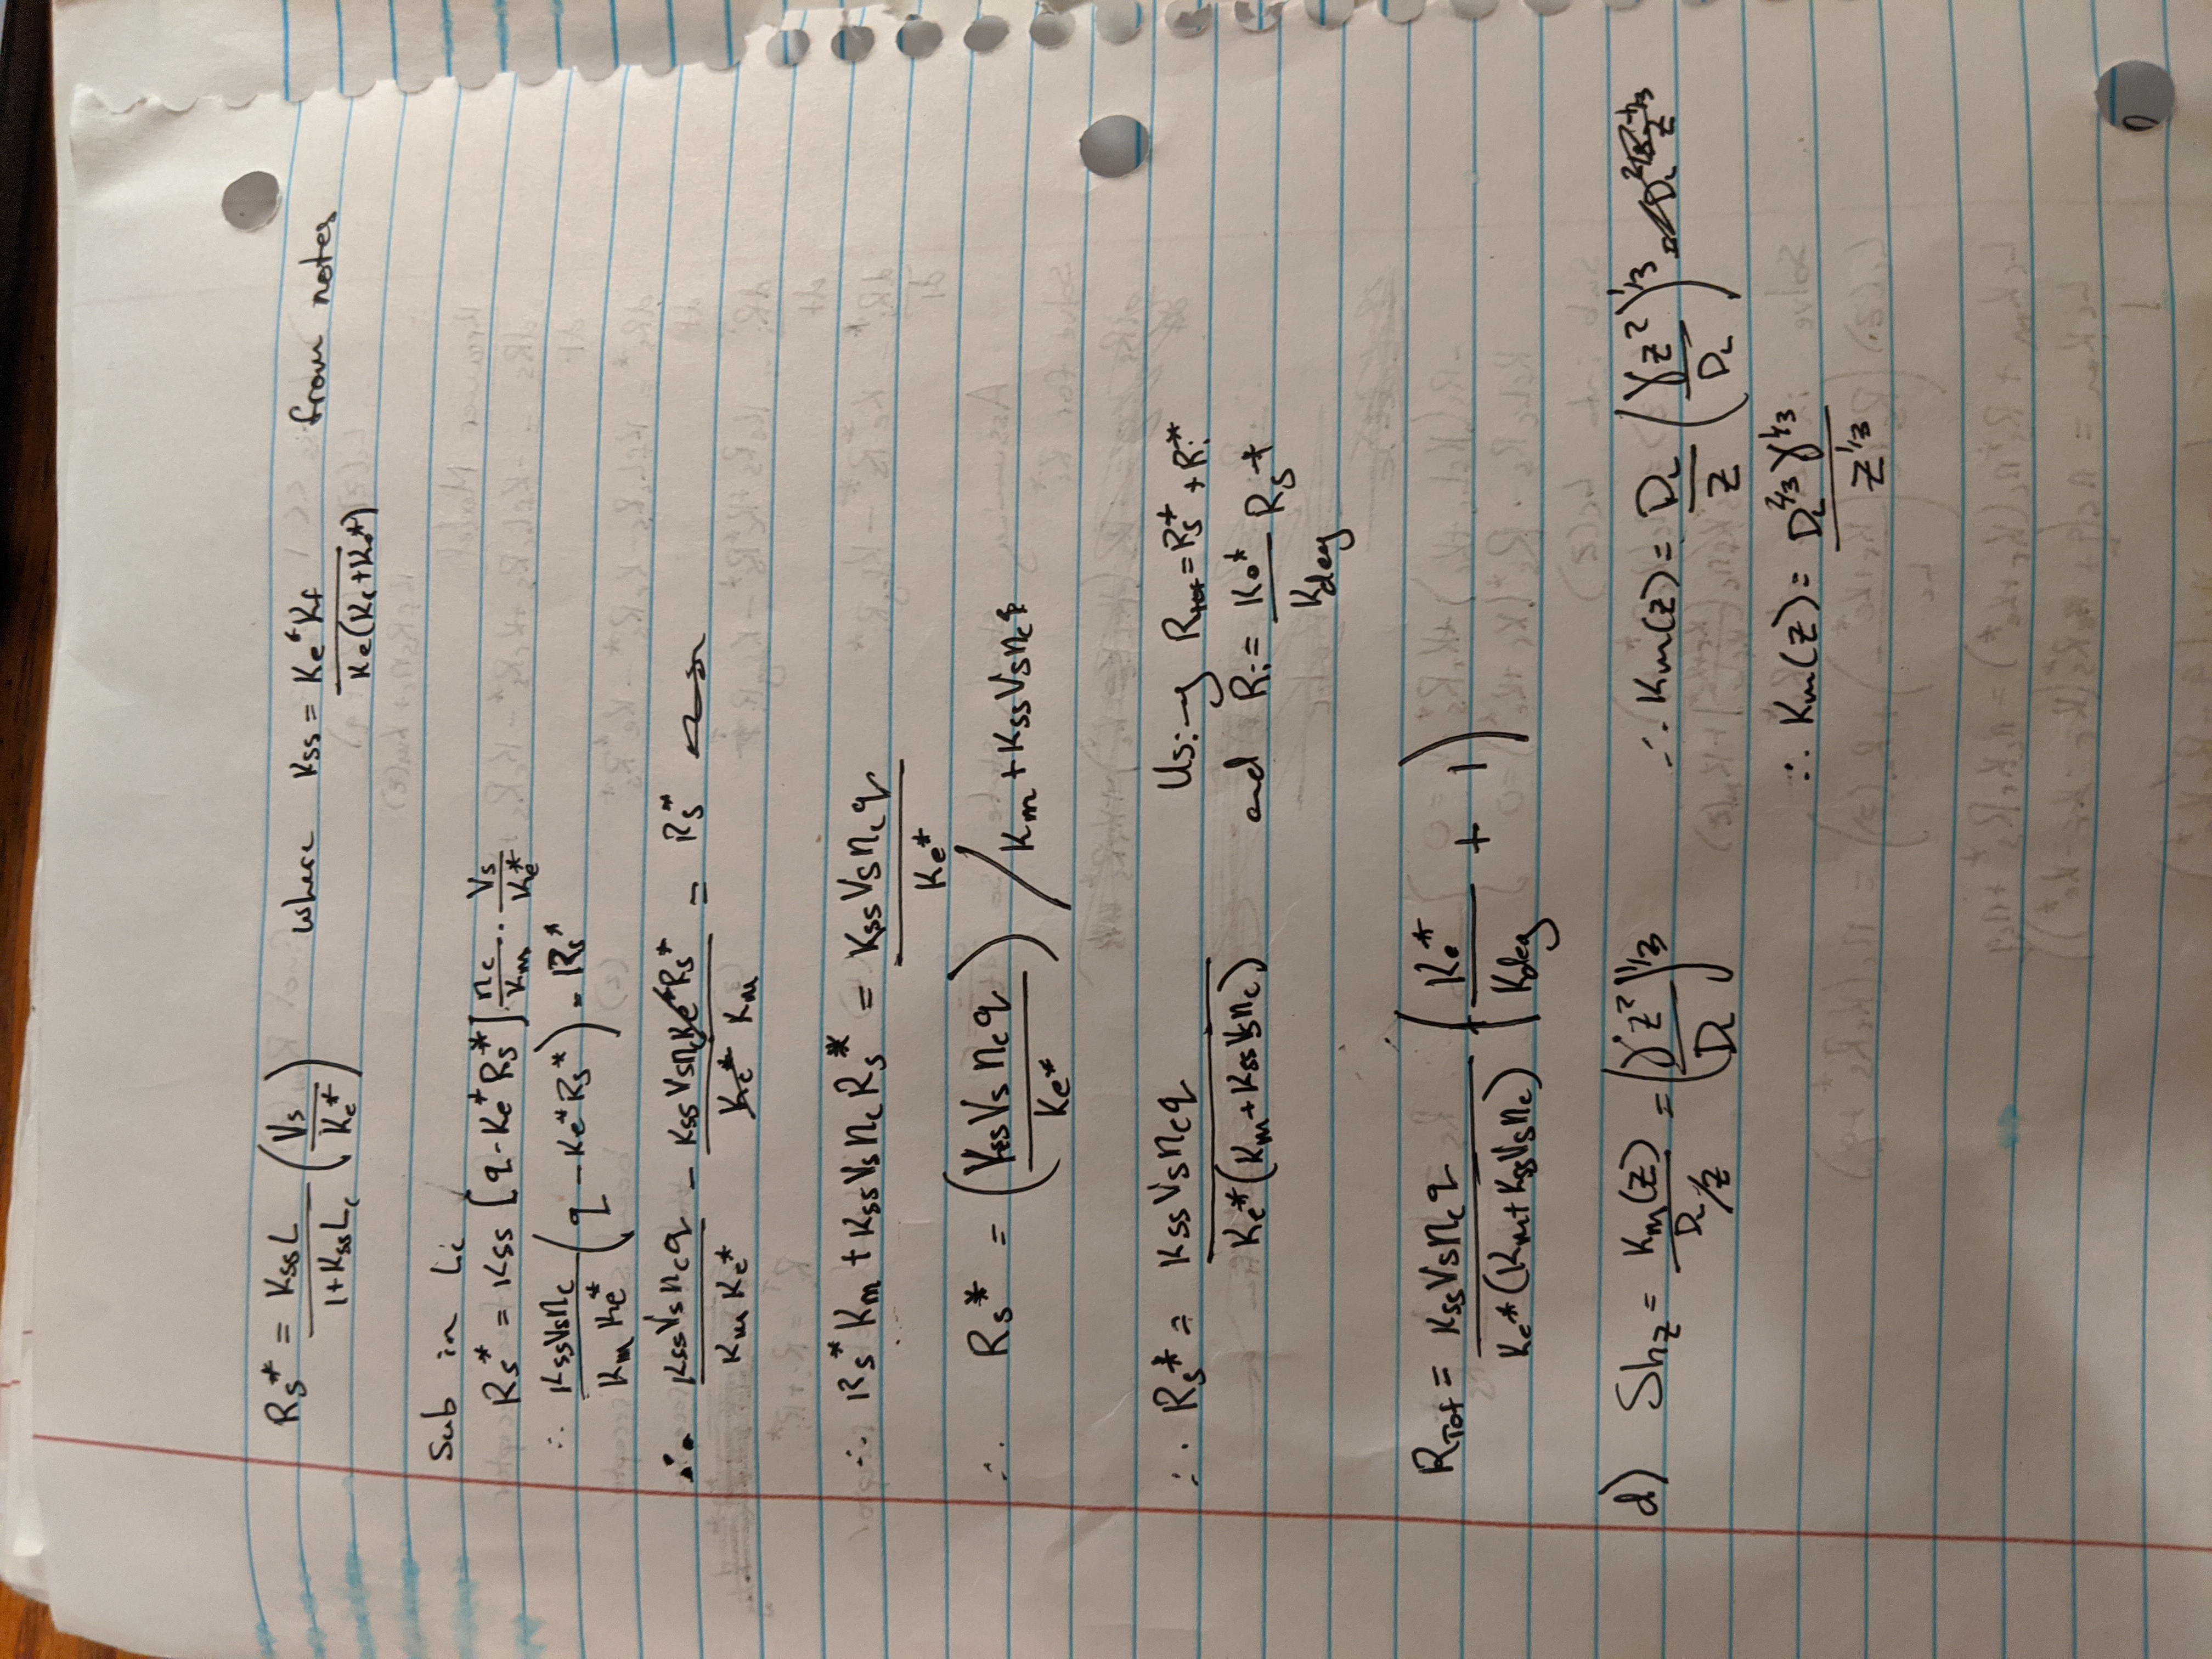 Rs* = KssL / 1+KssLc (Vs / Ke*) where Kss = Ke*Kf / Ke(Kr+Ke*) from notes
Sub in Lc
Rs* = Kss [q-Ke*Rs*] nc/Km · Vs/Ke*
∴ KssVsnc / Km Ke* (q - Ke*Rs*) = Rs*
∴ KssVsncq / Km Ke* - Kss VsncKe*Rs* / Ke* Km = Rs*
∴ Rs* Km + Kss Vs nc Rs* = Kss Vs nc q / Ke*
∴ Rs* = (Kss Vs nc q / Ke*) / Km + Kss Vs nc
∴ Rs* = Kss Vs nc q / Ke*(Km+Kss Vs nc) Using Rtot = Rs* + Ri*
and Ri = Ke* / Kdeg Rs*
RTot = Kss Vs nc q / Ke*(Km+KssVsnc) (Ke* / Kdeg + 1)
d) Shz = Km(z) / DL/z = (γz² / DL)^1/3 ∴ Km(z) = DL / z (γz² / DL)^1/3
∴ Km(z) = DL^2/3 γ^1/3 / z^1/3